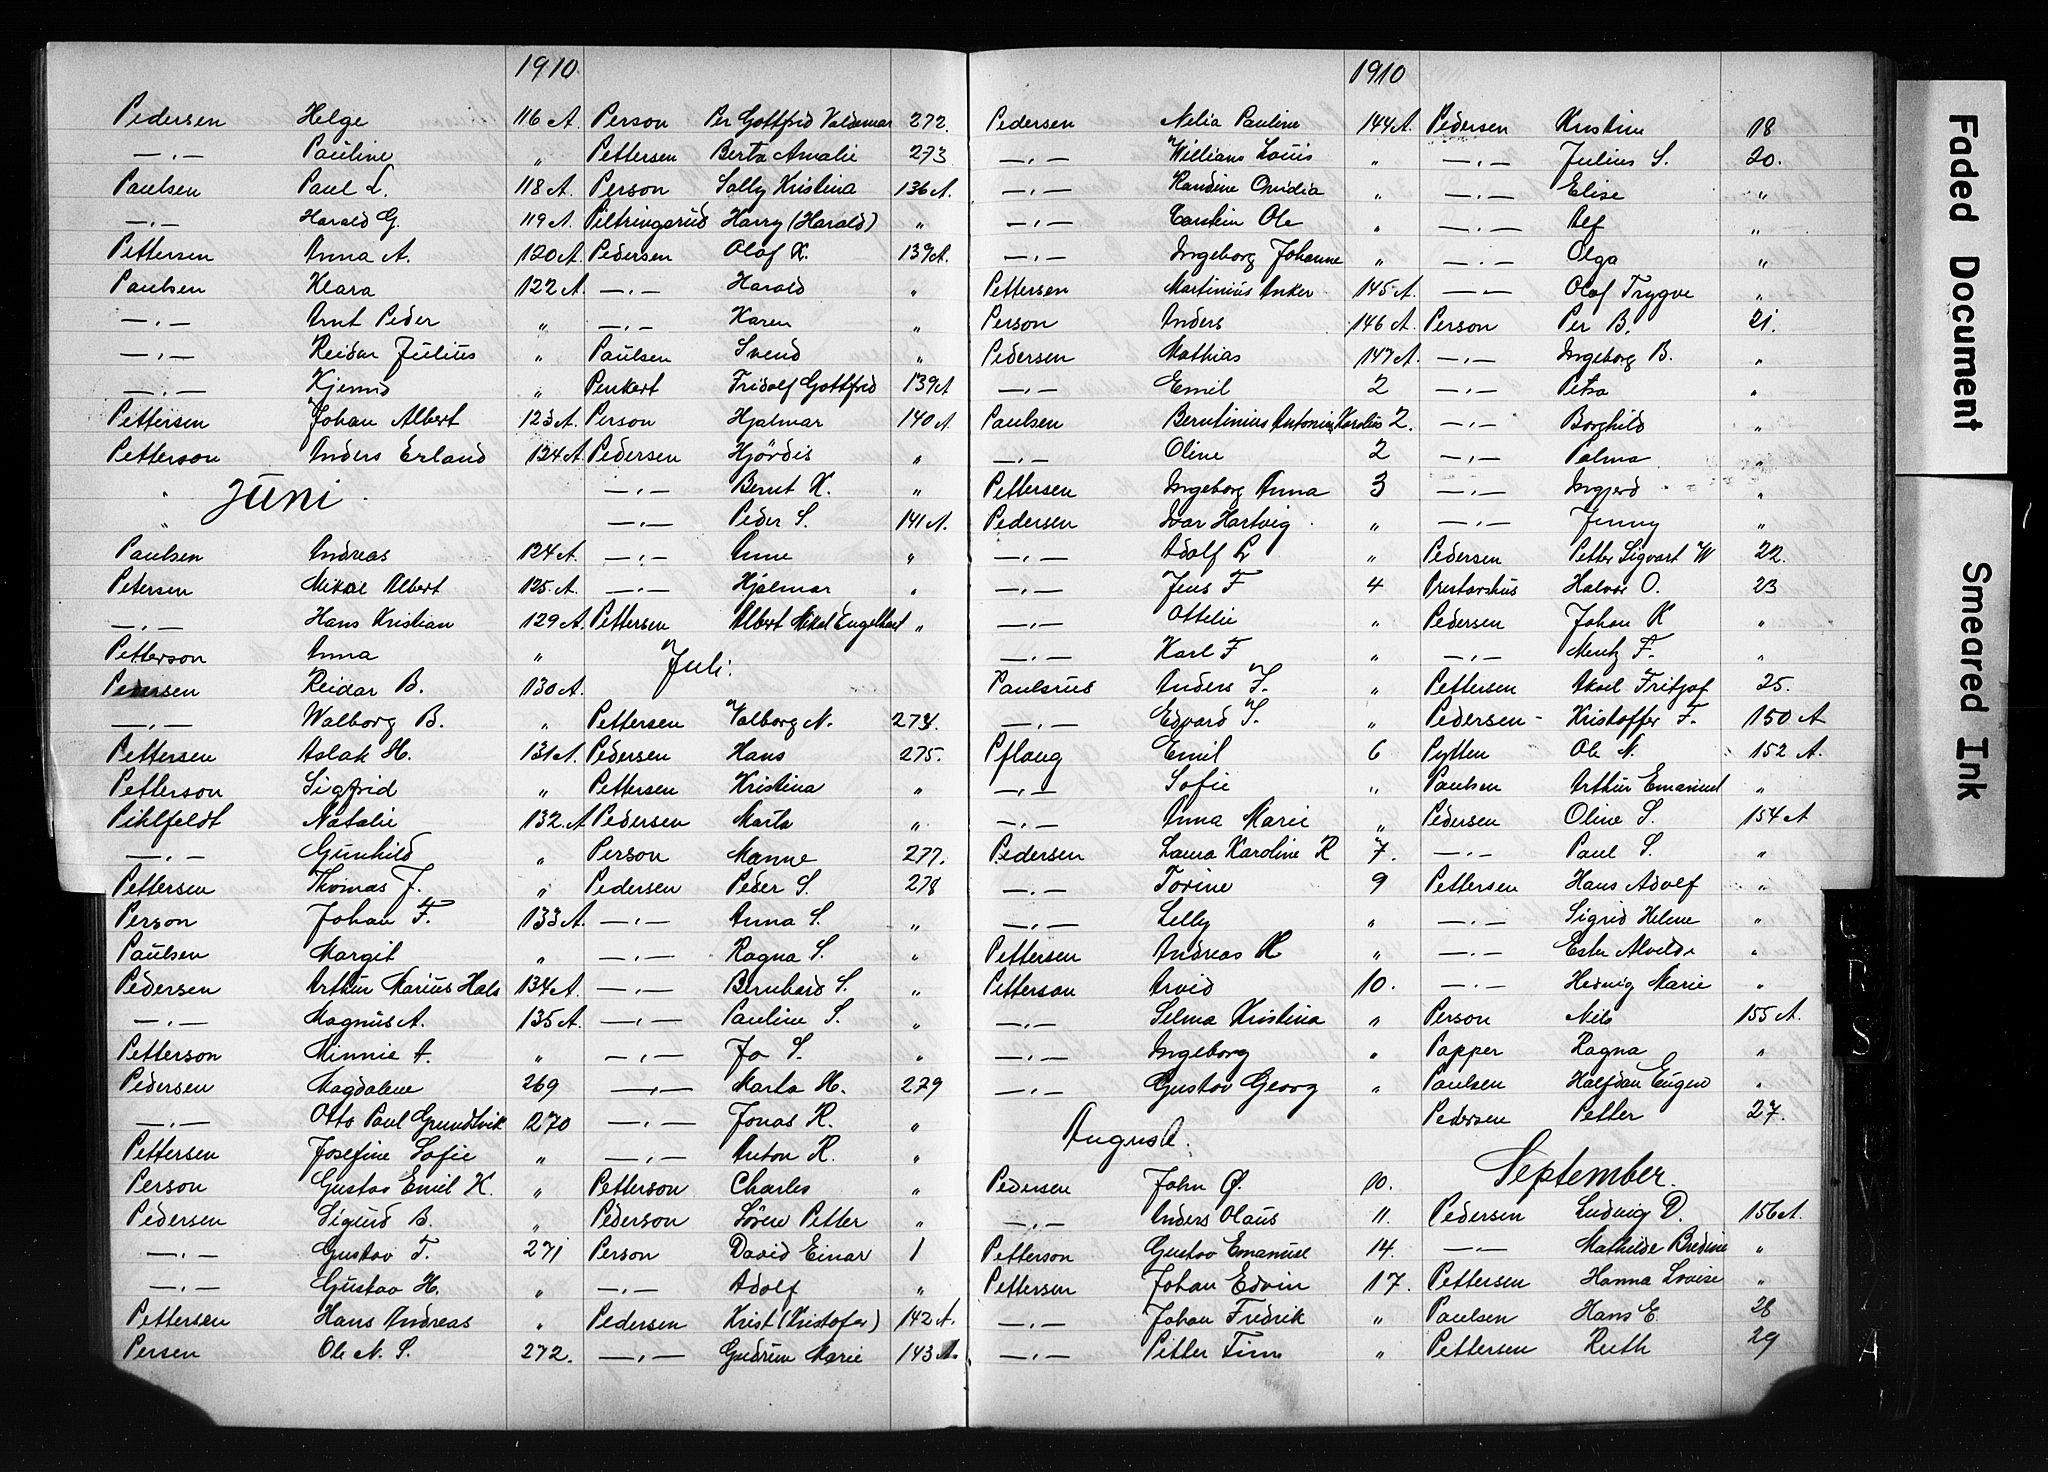 1910
Pedersen Helge 116 A
—"— Pauline "
Paulsen Paul L. 118 A
—"— Harald G. 119 A
Pettersen Anna A. 120 A
Paulsen Klara 122 A
—"— Arnt Peder "
—"— Reidar Julius "
—"— Kjemis "
Pettersen Johan Albert 123 A
Petterson Anders Erland 124 A
" Juni
"
Paulsen Andreas 124 A
Petersen Mikal Albert 125 A
—"— Hans Kristian 129 A
Petterson Anna "
Pedersen Reidar B. 130 A
—"— Walborg B. "
Pettersen Aslak H. 131 A
Petterson Sigfrid "
Pihlfeldt Natalie 132 A
—"— Gunhild "
Pettersen Thomas J. "
Person Johan F. 133 A
Paulsen Margit "
Pedersen Arthur Marius Hals 134 A
—"— Magnus A. 135 A
Petterson Minnie A. "
Pedersen Magdalene 269
—"— Otto Paul Grundtvik 270
Pettersen Josefine Sofie "
Person Gustav Emil K. "
Pedersen Sigurd B. "
—"— Gustav T. 271
—"— Gustav H. "
Pettersen Hans Andreas "
Persen Ole N. S. 272.
Person Per Gottfrid Valdemar 272.
Pettersen Berta Amalie 273
Person Sally Kristina 136 A
Piltringsrud Harry (Harald) "
Pedersen Olaf K. 139 A
—"— Harald "
—"— Karen "
Paulsen Svend "
Penkert Fridolf Gottfrid 139 A
Person Hjalmar 140 A
Pedersen Hjördis "
—"— Bernt K. "
—"— Peder S. 141 A
—"— Anne "
—"— Hjalmar "
Pettersen Albert Mikal Engelhart "
Juli.
Pettersen Valborg N. 274.
Pedersen Hans 275.
Pettersen Kristina "
Pedersen Marta "
Person Manne 277.
Pedersen Peder S. 278
—"— Anna S. "
—"— Ragna S. "
—"— Bernhard S. "
—"— Pauline S. "
—"— Jo S. "
—"— Marta H. 279
—"— Jonas R. "
—"— Anton R. "
Petterson Charles "
Pederson Sören Petter "
Person David Einar 1
—"— Adolf "
Pedersen Krist (Kristofer) 142 A.
—"— Gudrun Marie 143 A
1910
Pedersen Nelia Pauline 144 A.
—"— William Louis "
—"— Randine Ovidia "
—"— Carsten Ole "
—"— Ingeborg Johanne "
Pettersen Martinius Anker 145 A.
Person Anders 146 A.
Pedersen Mathias 147 A.
—"— Emil 2
Paulsen Berntinius Antonius Karolius 2.
—"— Oline 2
Pettersen Ingeborg Anna 3
Pedersen Ivar Hartvig "
—"— Adolf L "
—"— Jens F 4
—"— Ottelie "
—"— Karl F "
Paulsrus Anders S. "
—"— Edvard S. "
Pflaug Emil 6
—"— Sofie "
—"— Anna Marie "
Pedersen Laura Karoline R 7.
—"— Torine 9
—"— Lelly "
Pettersen Andreas H "
Petterson Arvid 10.
—"— Selma Kristina "
—"— Ingeborg "
—"— Gustav Georg "
August.
Pedersen John Ø. 10.
—"— Anders Olaus 11.
Petterson Gustav Emanuel 14.
Pettersen Johan Edvin 17.
—"— Johan Fredrik "
—"— Petter Finn "
Pedersen Kristine 18
—"— Julius S. 20.
—"— Elise "
—"— Alf "
—"— Olga "
—"— Olaf Trygve "
Person Per B. 21.
—"— Ingeborg B. "
—"— Petra "
—"— Borghild "
—"— Palma "
—"— Ingjerd "
—"— Jenny "
Pedersen Petter Sigvart W 22.
Prestarshus Halvor O. 23
Pedersen Johan K "
—"— Mentz F. "
Pettersen Aksel Fritjof 25.
Pedersen - Kristoffer F. 150 A
Pytten Ole N. 152 A.
Paulsen Arthur Emanuel "
Pedersen Oline S. 154 A
—"— Paul S. "
Pettersen Hans Adolf "
—"— Sigrid Helene "
—"— Ester Alvilde "
—"— Hedvig Marie "
Person Nils 155 A.
Papper Ragna "
Paulsen Halfdan Eugen "
Pedersen Petter 27.
September.
Pedersen Ludvig D. 156 A.
—"— Mathilde Bredine "
Pettersen Hanna Lovise "
Paulsen Hans E. 28
Pettersen Ruth 29
Faded Document
Smeared Ink